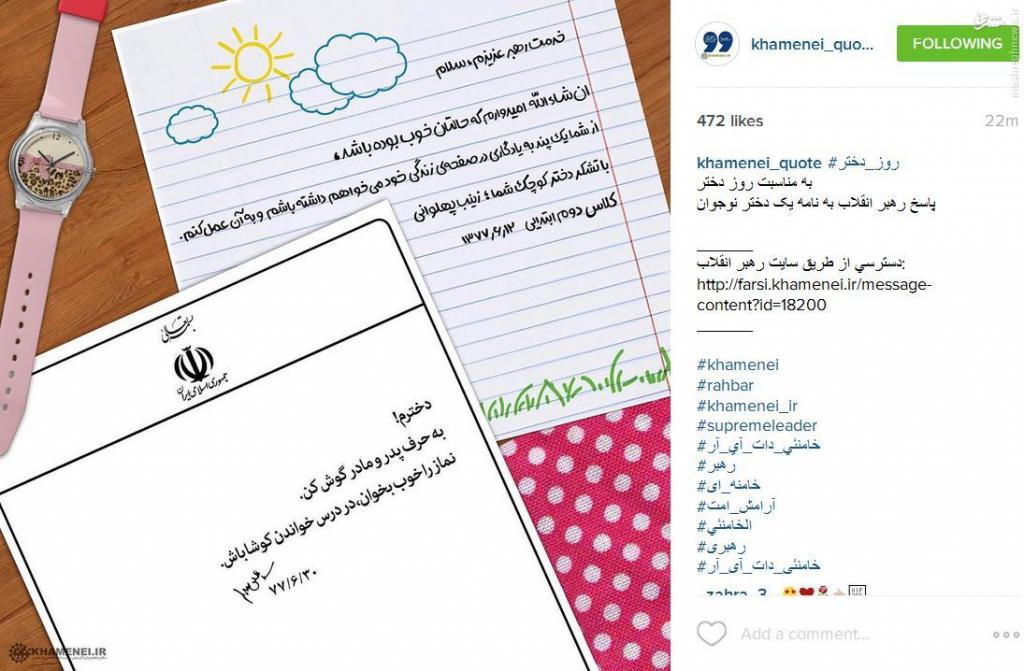 خدمت رهبر عزیزم، سلام
ان شاء الله امیدوارم که حالتان خوب بوده باشد،
از شما یک پند به یادگاری در صفحه‌ی زندگی خود می‌خواهم داشته باشم و به آن عمل کنم.
با تشکر دختر کوچک شما؛ زینب پهلوانی
کلاس دوم ابتدایی ۱۳۷۷,۶,۱۲
بسمه تعالی
جمهوری اسلامی ایران
دخترم!
به حرف پدر و مادر گوش کن.
نماز را خوب بخوان، در درس خواندن کوشا باش.
۷۷/۶/۳۰
KHAMENEI.IR
khamenei_quo...
FOLLOWING
mashreghnews.ir
472 likes
22m
khamenei_quote #روز_دختر
به مناسبت روز دختر
پاسخ رهبر انقلاب به نامه یک دختر نوجوان
________
دسترسي از طریق سایت رهبر انقلاب:
http://farsi.khamenei.ir/message-
content?id=18200
________
#khamenei
#rahbar
#khamenei_ir
#supremeleader
#خامنئي_دات_آي_آر
#رهبر
#خامنه_ای
#آرامش_امت
#الخامنئي
#رهبری
#خامنئی_دات_آی_آر
zahra_3
Add a comment...